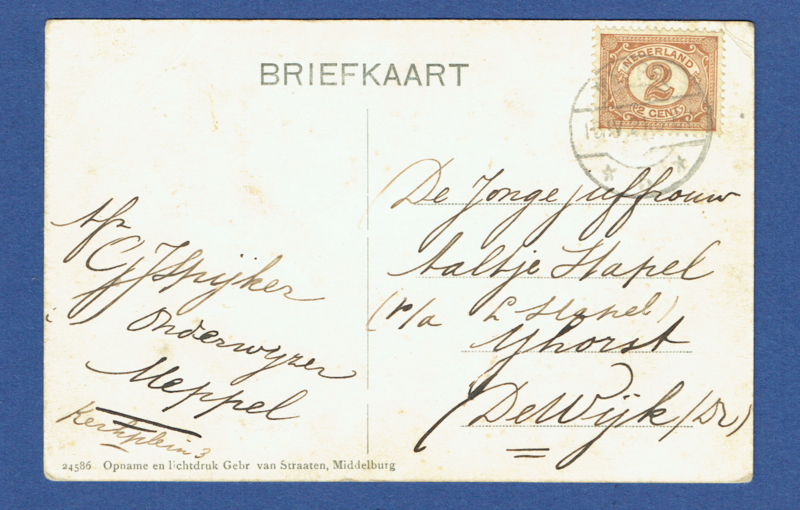 BRIEFKAART
NEDERLAND
2
2 CENT
Afz
G J Spijker
Onderwijzer
Meppel
Kerkplein 3
De Jongejuffrouw
Aaltje Stapel
(p/a L Stapel)
Yhorst
De Wijk (Dr)
24586 Opname en lichtdruk Gebr van Straaten, Middelburg